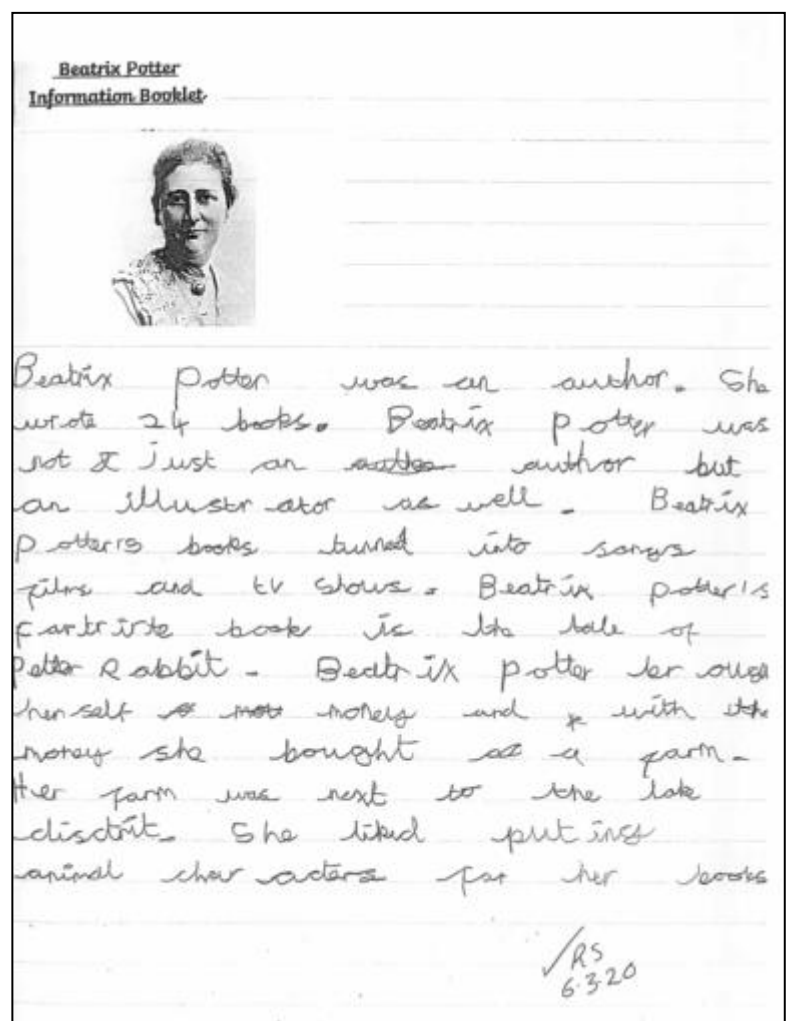 Beatrix Potter
Information Booklet
Beatrix Potter was an author. She
wrote 24 books. Beatrix Potter was
not just an author but
an illustrator as well. Beatrix
Potter's books turned into songs
films and tv shows. Beatrix Potter's
book is the tale of
Peter Rabbit. Beatrix Potter
her self money and with the
money she bought a farm.
Her farm was next to the lake
disctrit. She liked puting
animal characters for her books
RS
6.3.20